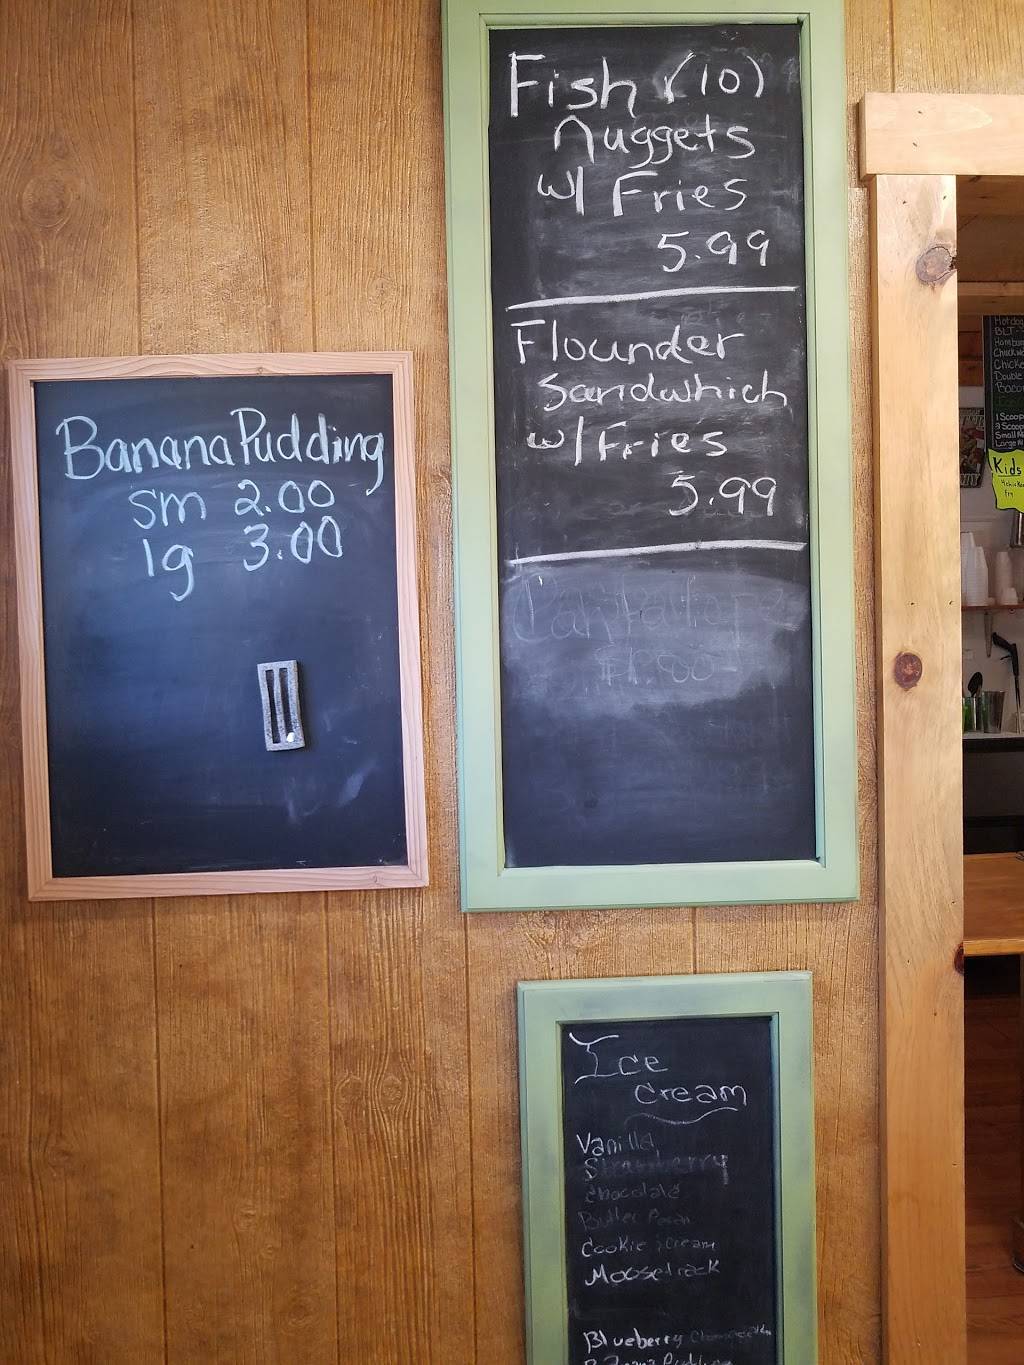 Banana Pudding
sm 2.00
lg 3.00
Fish (10)
Nuggets
w/ Fries
5.99
Flounder
Sandwhich
w/ Fries
5.99
Cantalope
Ice
cream
Vanilla
Strawberry
Chocolate
Butter Pecan
Cookie & cream
Moosetrack
Blueberry
Banana Pudding
Hotdog
BLT
Chicken
Double
1 Scoop
2 Scoop
Small
Large
Kids